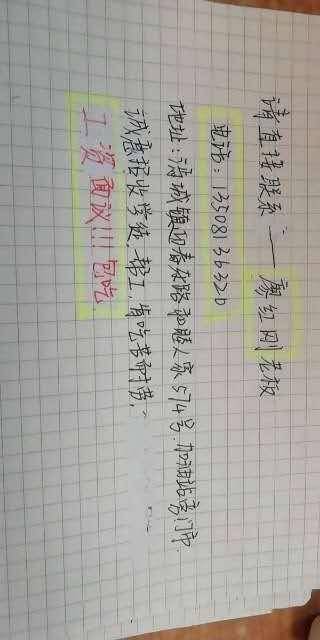 请直接联系——廖红刚老板
电话：13508136320
地址：清城镇迎春东路和睦人家574号.加油站旁门市.
诚意招收学徒.帮工.肯吃苦耐劳,
工资面议!!!包吃.